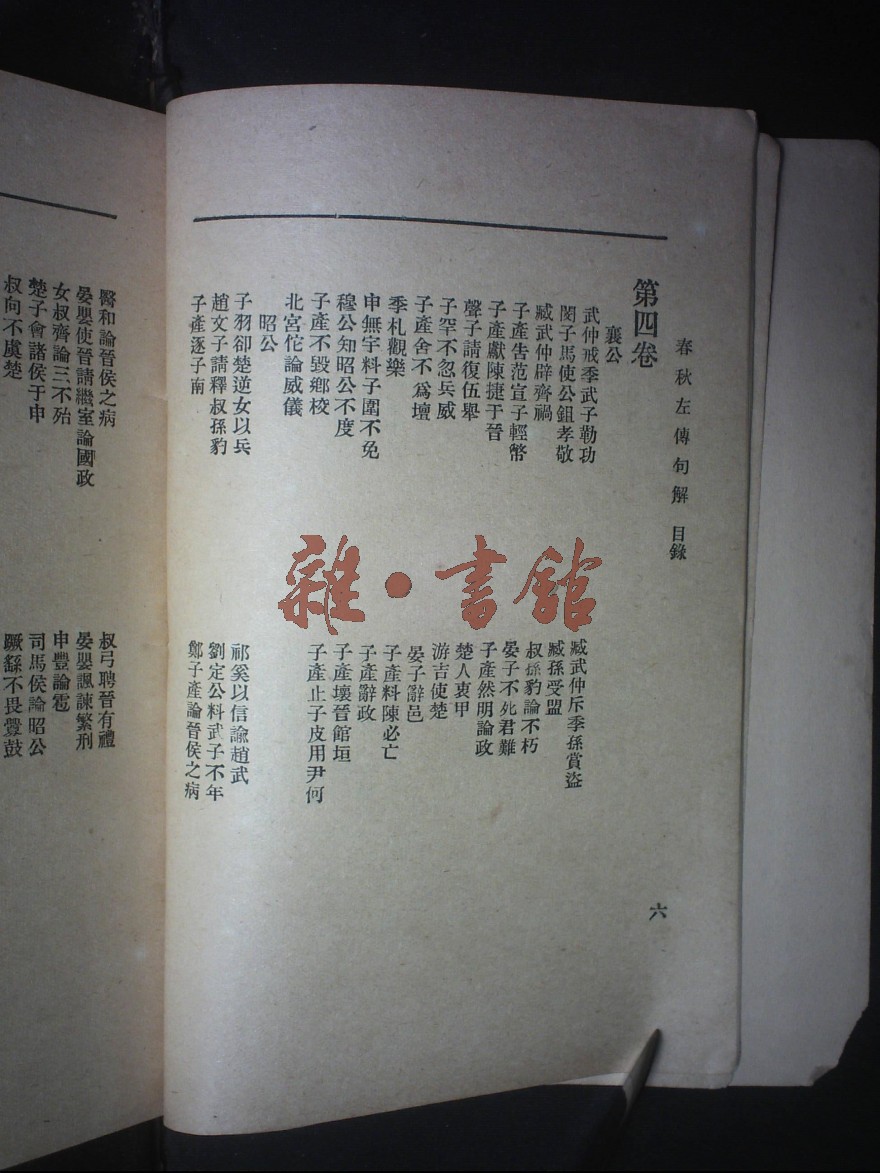 春秋左傳句解 目錄
六
第四卷
襄公
武仲戒季武子勒功
臧武仲斥季孫賞盜
閔子馬使公鉏孝敬
臧孫受盟
臧武仲辟齊禍
叔孫豹論不朽
子產告范宣子輕幣
晏子不死君難
子產獻陳捷于晉
子產然明論政
聲子請復伍舉
楚人衷甲
子罕不忍兵威
游吉使楚
子產舍不爲壇
晏子辭邑
季札觀樂
子產料陳必亡
申無宇料子圍不免
子產辭政
穆公知昭公不度
子產壞晉館垣
子產不毀鄉校
子產止子皮用尹何
北宮佗論威儀
昭公
子羽卻楚逆女以兵
祁奚以信諭趙武
趙文子請釋叔孫豹
劉定公料武子不年
子產逐子南
鄭子產論晉侯之病
醫和論晉侯之病
叔弓聘晉有禮
晏嬰使晉請繼室論國政
晏嬰諷諫繁刑
女叔齊論三不殆
申豐論雹
楚子會諸侯于申
司馬侯論昭公
叔向不虞楚
蹶繇不畏釁鼓
雜·書館